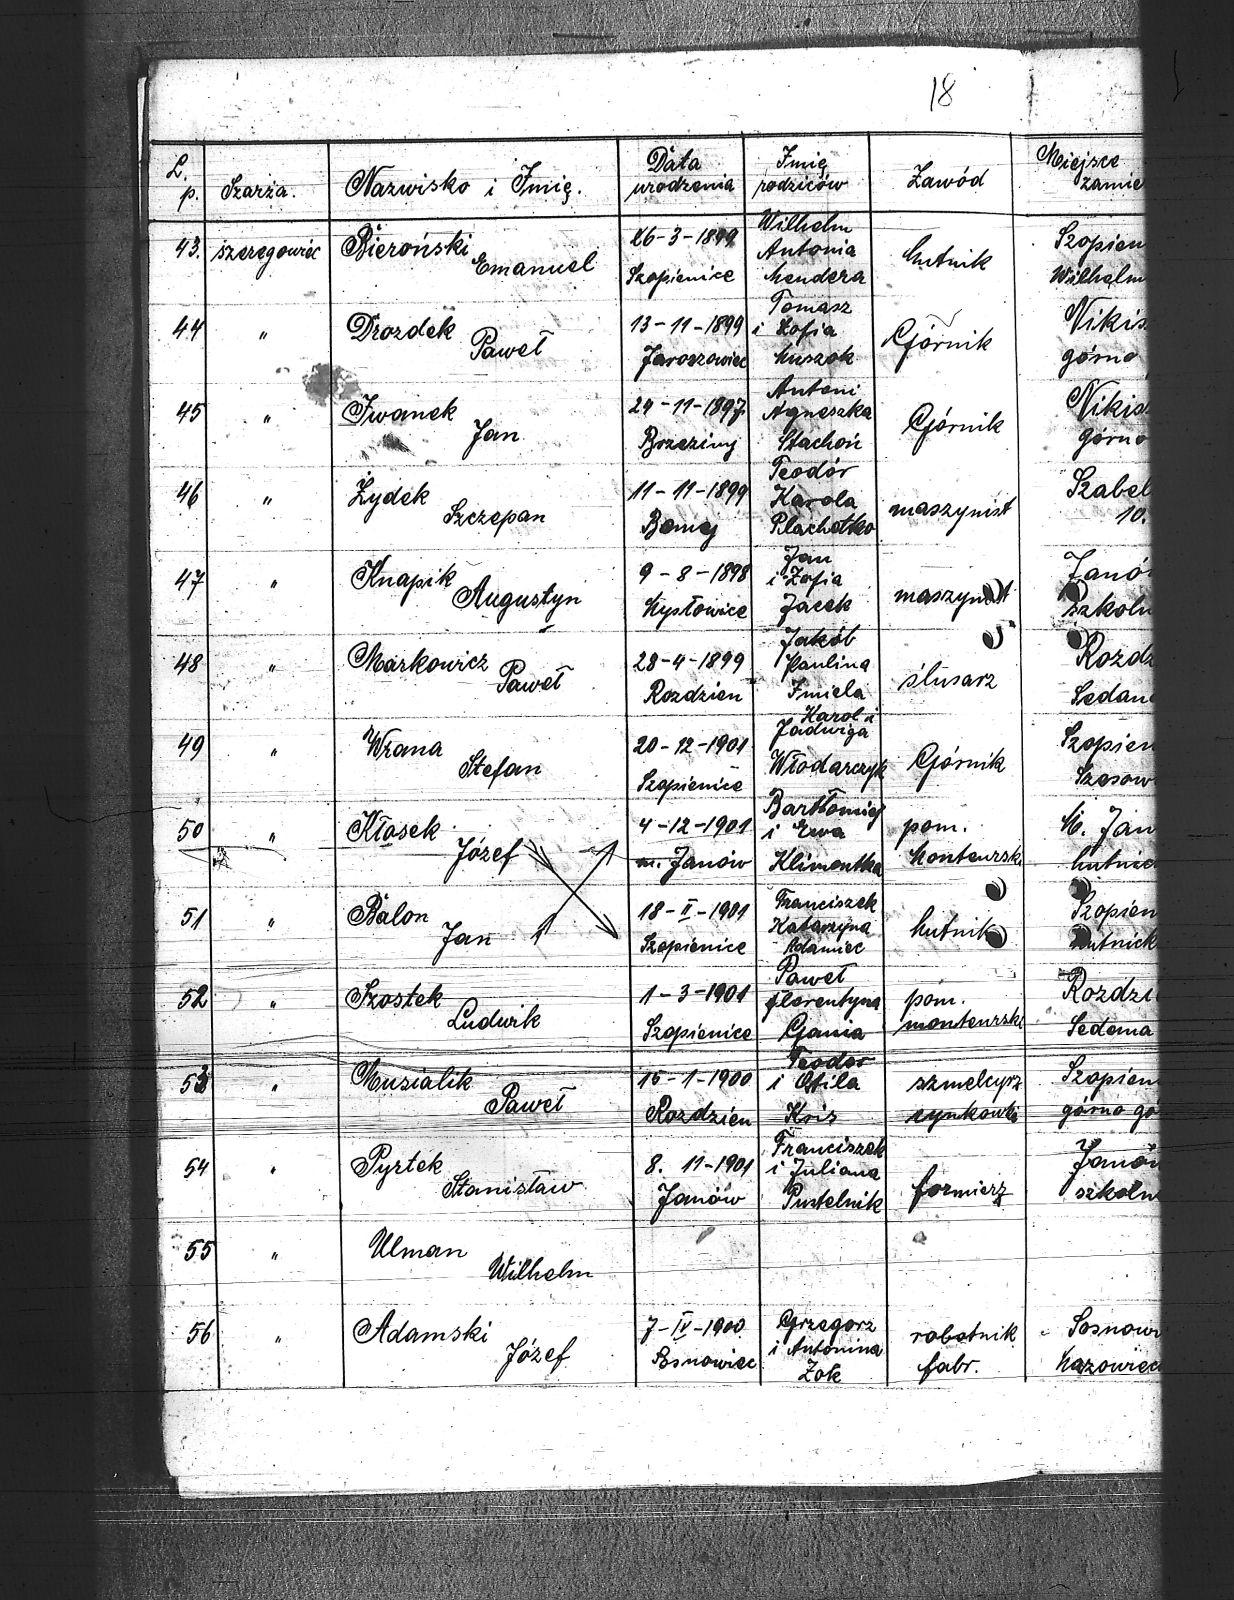 18
L. p. Szarża. Nazwisko i Imię. Data urodzenia Imię rodziców Zawód Miejsce zamie
43. szeregowiec Bieroński Emanuel 26-3-1899 Szopienice Wilhelm Antonia Mendera hutnik Szopien Wilhelm
44 " Drozdek Paweł 13-11-1899 Jaroszowiec Tomasz i Zofia Muszok Górnik Nikis górno
45 " Iwanek Jan 24-11-1897 Brzeziny Antoni Agneszka Stachoń Górnik Nikis górno
46 " Żydek Szczepan 11-11-1899 Teodór Karola Plachetko maszynist Szabel 10.
47 " Knapik Augustyn 9-8-1898 Mysłowice Jan i Zofia Jacek maszynist Janó szkoln
48 " Markowicz Paweł 28-4-1899 Rozdzien Jakób Paulina Imiela ślusarz Rozdz Sedan
49 " Wrana Stefan 20-12-1901 Szopienice Karol i Jadwiga Włodarczyk Górnik Szopien Szosow
50 " Kłosek Józef 4-12-1901 m. Janów Bartłomiej i Ewa Klimontka pom. monterski M. Jan hutnic
51 " Balon Jan 18-II-1901 Szopienice Franciszek Katarzyna Adamiec hutnik Szopien hutnick
52 " Szostek Ludwik 1-3-1901 Szopienice Paweł florentyna Gania pom. monterski Rozdzi Sedema
53 " Musialik Paweł 15-1-1900 Rozdzien Teodor i Otila Kris szmelcyrz cynkowki Szopien górno gó
54 " Pyrtek Stanisław 8. 11-1901 Janów Franciszek i Juliana Pustelnik formierz Janów szkoln
55 " Ulman Wilhelm
56 " Adamski Józef 7-IV-1900 Sosnowiec Grzegorz i Antonina Żok robotnik fabr. Sosnow Mazowiec